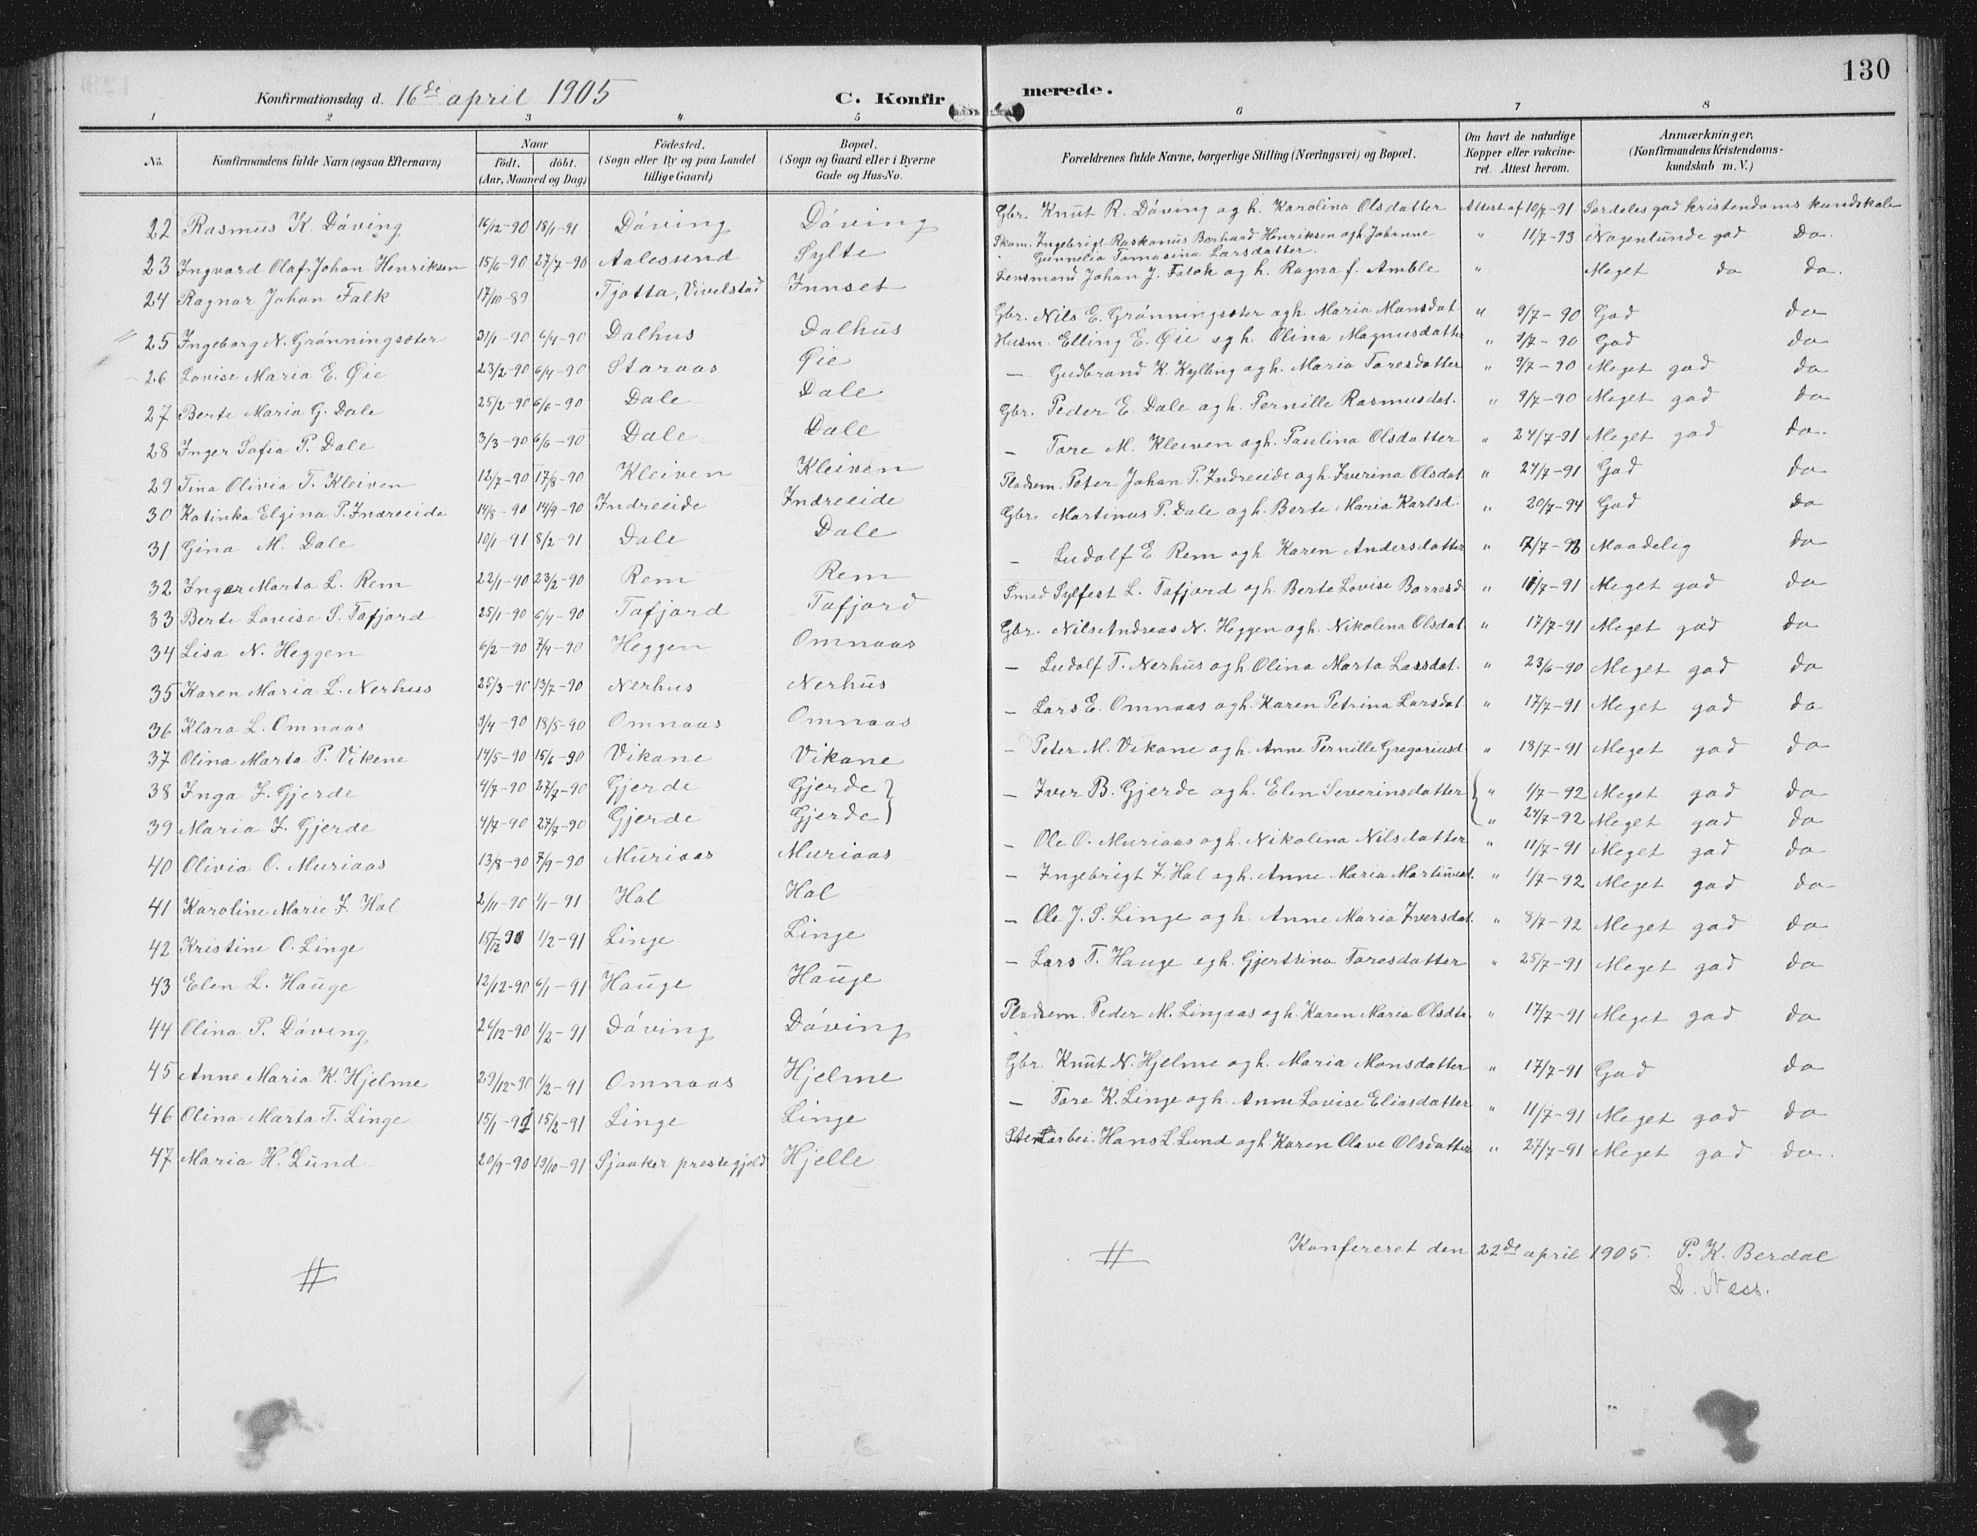 130
Konfirmationsdag d. 16de april 1905 C. Konfirmerede.
1 2 3 4 5 6 7 8
No. Konfirmandens fulde Navn (ogsaa Efternavn) Naar født. døbt. (Aar, Maaned og Dag) Fødested. (Sogn eller By og paa Landet tillige Gaard) Bopæl. (Sogn og Gaard eller i Byerne Gade og Hus-No. Forældrenes fulde Navne, borgerlige Stilling (Næringsvei) og Bopæl. Om havt de naturlige Kopper eller vakcineret. Attest herom. Anmærkninger. (Konfirmandens Kristendomskundskab m. V.)
22 Rasmus K. Döving 16/12-90 18/1-91 Döving Döving Gbr. Knut R. Döving og h. Karolina Olsdatter Attest af 10/7-91 Særdeles god kristendoms kundskab
23 Ingvard Olaf Johan Henriksen 15/6-90 27/7-90 Aalesund Sylte Skom. Ingebrigt Raskanus Berhard Henriksen og h. Johanne Gunnelia Tomasina Larsdatter " 11/7-93 Nogenlunde god Do.
24 Ragnar Johan Falk 17/10-89 Tjøtta, Vivelstad Innset Lensmand Johan J. Falck og h. Ragna f. Amble " Meget do do.
25 Ingeborg N. Grønningsæter 31/1-90 6/4-90 Dalhus Dalhus Gbr. Nils E. Grønningsæter og h. Maria Monsdat. " 9/7-90 God do
26 Lovise Maria E. Øie 23/2-90 6/4-90 Staraas Øie Husm. Elling E. Øie og h. Olina Magnusdatter " 9/7-90 God do
27 Berte Maria G. Dale 25/2-90 6/6-90 Dale Dale — Gudbrand K. Kylling og h. Maria Toresdatter " 9/7-90 Meget god do
28 Inger Sofia P. Dale 3/3-90 6/6-90 Dale Dale Gbr. Peder E. Dale og h. Pernille Rasmusdat. " 9/7-90 Meget god do
29 Tina Olivia T. Kleiven 12/7-90 17/8-90 Kleiven Kleiven — Tore M. Kleiven og h. Paulina Olsdatter " 24/7-91 Meget god do.
30 Katinka Elgina P. Indreeide 14/8-90 14/9-90 Indreeide Indreeide Pladsem. Peter Johan P. Indreeide og h. Iverina Olsdat. " 27/7-91 God do
31 Gina M. Dale 10/1-91 8/2-91 Dale Dale Gbr. Martinus P. Dale og h. Berte Maria Karlsd. " 20/7-94 God do
32 Inger Marta L. Rem 22/1-90 23/2-90 Rem Rem — Ludolf E. Rem og h. Karen Andersdatter " Maadelig do
33 Berte Lovise S. Tafjord 25/1-90 6/4-90 Tafjord Tafjord Smed Sylfest L. Tafjord og h. Berte Lovise Borresd. " 11/7-91 Meget god do
34 Lisa N. Heggen 6/2-90 7/4-90 Heggen Omnaas Gbr. Nils Andreas N. Heggen og h. Nikolina Olsdat. " 17/7-91 Meget god do
35 Karen Maria L. Nerhus 25/3-90 13/7-90 Nerhus Nerhus — Ludolf T. Nerhus og h. Olina Marta Larsdat. " 23/6-90 Meget god do
36 Klara L. Omnaas 3/4-90 18/5-90 Omnaas Omnaas — Lars E. Omnaas og h. Karen Petrina Larsdat. " 17/7-91 Meget god do
37 Olina Marta P. Vikene 14/5-90 15/6-90 Vikane Vikane — Peter M. Vikane og h. Anne Pernille Gregoriusd " 18/7-91 Meget god do
38 Inga I. Gjerde 4/7-90 27/7-90 Gjerde Gjerde — Iver B. Gjerde og h. Elen Severinsdatter " 1/7-92 Meget god do
39 Maria I. Gjerde 4/7-90 27/7-90 Gjerde Gjerde " 24/7-92 Meget god do
40 Olivia O. Muriaas 13/8-90 7/9-90 Muriaas Muriaas — Ole O. Muriaas og h. Nikolina Nilsdatter " 11/7-91 Meget god do
41 Karoline Marie I. Hol 2/11-90 1/1-91 Hol Hol — Ingebrigt I. Hol og h. Anne Maria Martinusd. " 1/7-92 Meget god do
42 Kristine O. Linge 15/12 90 1/2-91 Linge Linge — Ole J. S. Linge og h. Anne Maria Iversdat. " 8/7-92 Meget god do
43 Elen L. Hauge 12/12-90 6/1-91 Hauge Hauge — Lars T. Hauge og h. Gjertina Toresdatter " 25/7-91 Meget god do
44 Olina P. Döving 26/12-90 1/2-91 Döving Döving Pladsem. Peder M. Lingaas og h. Karen Maria Olsdtr. " 17/7-91 Meget god do
45 Anne Maria K. Hjelme 29/12-90 1/2-91 Omnaas Hjelme Gbr. Knut N. Hjelme og h. Maria Monsdatter " 17/7-91 God do
46 Olina Marta T. Linge 15/1-91 15/2-91 Linge Linge — Tore K. Linge og h. Anne Lovise Eliasdatter " 11/7-91 Meget god do
47 Maria H. Lund 20/9-90 19/10-91 Sjaaker prestegjeld Hjelle Stenarbei. Hans L. Lund og h. Karen Olave Olsdatter " 27/7-91 Meget god do.
Konfereret den 22de april 1905. P. K. Berdal
L. Næss.